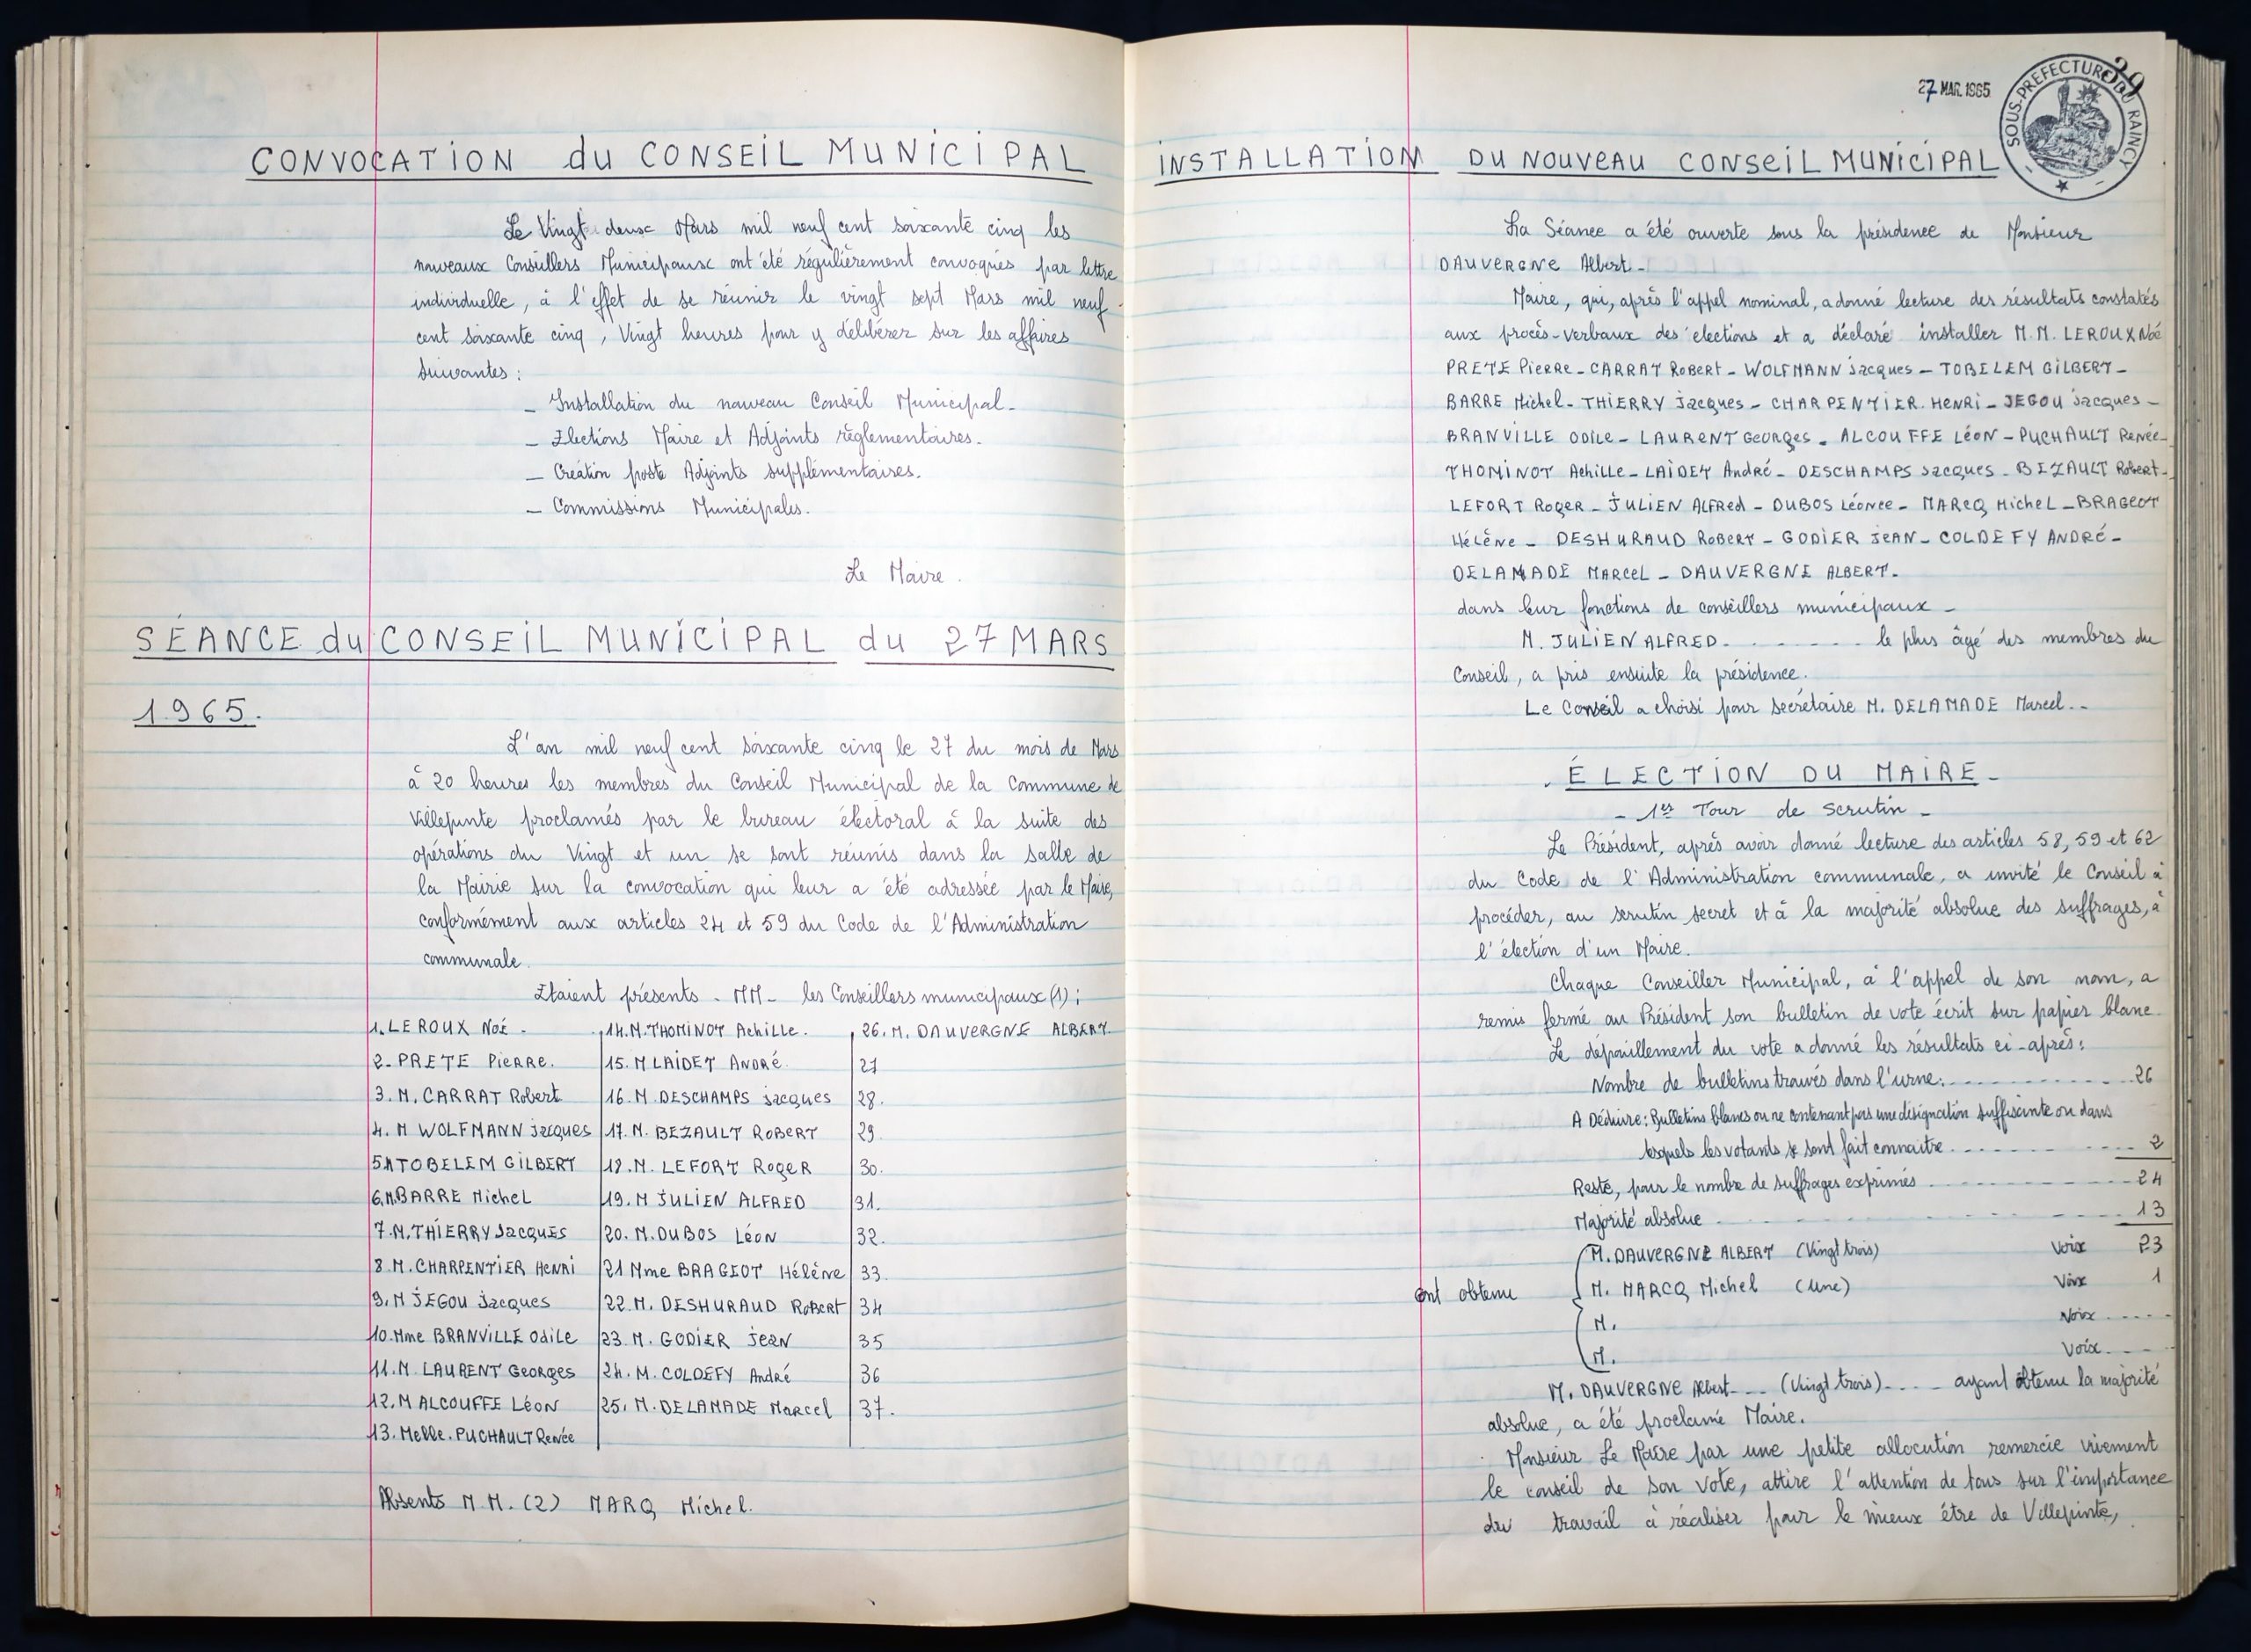 CONVOCATION du CONSEIL MUNICIPAL
Le Vingt deux Mars mil neuf cent soixante cinq les
nouveaux Conseillers Municipaux ont été régulièrement convoqués par lettre
individuelle, à l'effet de se réunir le vingt sept Mars mil neuf
cent soixante cinq, Vingt heures pour y délibérer sur les affaires
suivantes :
_ Installation du nouveau Conseil Municipal_
_ Elections Maire et Adjoints règlementaires.
_ Création poste Adjoints supplémentaires.
_ Commissions Municipales.
Le Maire.
SÉANCE du CONSEIL MUNICIPAL du 27 MARS
1965.
L'an mil neuf cent soixante cinq le 27 du mois de Mars
à 20 heures les membres du Conseil Municipal de la Commune de
Villepinte proclamés par le bureau électoral à la suite des
opérations du Vingt et un se sont réunis dans la salle de
la Mairie sur la convocation qui leur a été adressée par le Maire,
conformément aux articles 24 et 59 du Code de l'Administration
communale.
Etaient présents - MM - les Conseillers municipaux (1) :
1. LEROUX Noé. 14. M. THOMINOT Achille. 26. M. DAUVERGNE ALBERT.
2. PRETE Pierre. 15. M LAIDET ANDRÉ. 27
3. M. CARRAT Robert 16. M. DESCHAMPS Jacques 28.
4. M WOLFMANN Jacques 17. M. BEZAULT ROBERT 29.
5. M TOBELEM GILBERT 18. M. LEFORT Roger 30.
6. M. BARRE Michel 19. M JULIEN ALFRED 31.
7. M. THIERRY Jacques 20. M. DUBOS Léon 32.
8. M. CHARPENTIER HENRI 21 Mme BRAGEOT Hélène 33.
9. M JEGOU Jacques 22. M. DESHURAUD ROBERT 34
10. Mme BRANVILLE Odile 23. M. GODIER Jean 35
11. M. LAURENT Georges 24. M. COLDEFY André 36
12. M ALCOUFFE Léon 25. M. DELAMADE Marcel 37.
13. Melle. PUCHAULT Renée
Absents M M. (2) MARQ Michel.
27 MAR. 1965
SOUS-PREFECTURE DU RAINCY
INSTALLATION DU NOUVEAU CONSEIL MUNICIPAL
La Séance a été ouverte sous la présidence de Monsieur
DAUVERGNE Albert_
Maire, qui, après l'appel nominal, a donné lecture des résultats constatés
aux procès-verbaux des élections et a déclaré installer M. M. LEROUX Noé
PRETE Pierre_ CARRAT Robert_ WOLFMANN Jacques_ TOBELEM GILBERT_
BARRE Michel_ THIERRY Jacques_ CHARPENTIER. HENRI_ JEGOU Jacques_
BRANVILLE Odile_ LAURENT Georges_ ALCOUFFE Léon_ PUCHAULT Renée_
THOMINOT Achille_ LAIDET André_ DESCHAMPS Jacques_ BEZAULT Robert_
LEFORT Roger_ JULIEN ALFRED_ DUBOS Léonce_ MARCQ Michel_ BRAGEOT
Hélène_ DESHURAUD ROBERT_ GODIER JEAN_ COLDEFY ANDRÉ_
DELAMADE MARCEL_ DAUVERGNE ALBERT_
dans leur fonctions de conseillers municipaux_
M. JULIEN ALFRED. - - - - - - - le plus âgé des membres du
Conseil, a pris ensuite la présidence.
Le Conseil a choisi pour secrétaire M. DELAMADE Marcel. --
ÉLECTION DU MAIRE_
_ 1er Tour de scrutin _
Le Président, après avoir donné lecture des articles 58, 59 et 62
du Code de l'Administration communale, a invité le Conseil à
procéder, au scrutin secret et à la majorité absolue des suffrages, à
l'élection d'un Maire.
Chaque Conseiller Municipal, à l'appel de son nom, a
remis fermé au Président son bulletin de vote écrit sur papier blanc.
Le dépouillement du vote a donné les résultats ci-après :
Nombre de bulletins trouvés dans l'urne: - - - - - - - 26
A Déduire: Bulletins blancs ou ne contenant pas une désignation suffisante ou dans
lesquels les votants se sont fait connaitre. - - - - - - - 2
Reste, pour le nombre de suffrages exprimés - - - - - - - 24
Majorité absolue - - - - - - - 13
M. DAUVERGNE ALBERT (Vingt trois) Voix 23
ont obtenu M. MARCQ Michel (Une) Voix 1
M. Voix - - - -
M. Voix - - -
M. DAUVERGNE Albert - - - (Vingt trois) - - - - ayant obtenu la majorité
absolue, a été proclamé Maire.
Monsieur Le Maire par une petite allocution remercie vivement
le conseil de son vote, attire l'attention de tous sur l'importance
du travail à réaliser pour le mieux être de Villepinte,